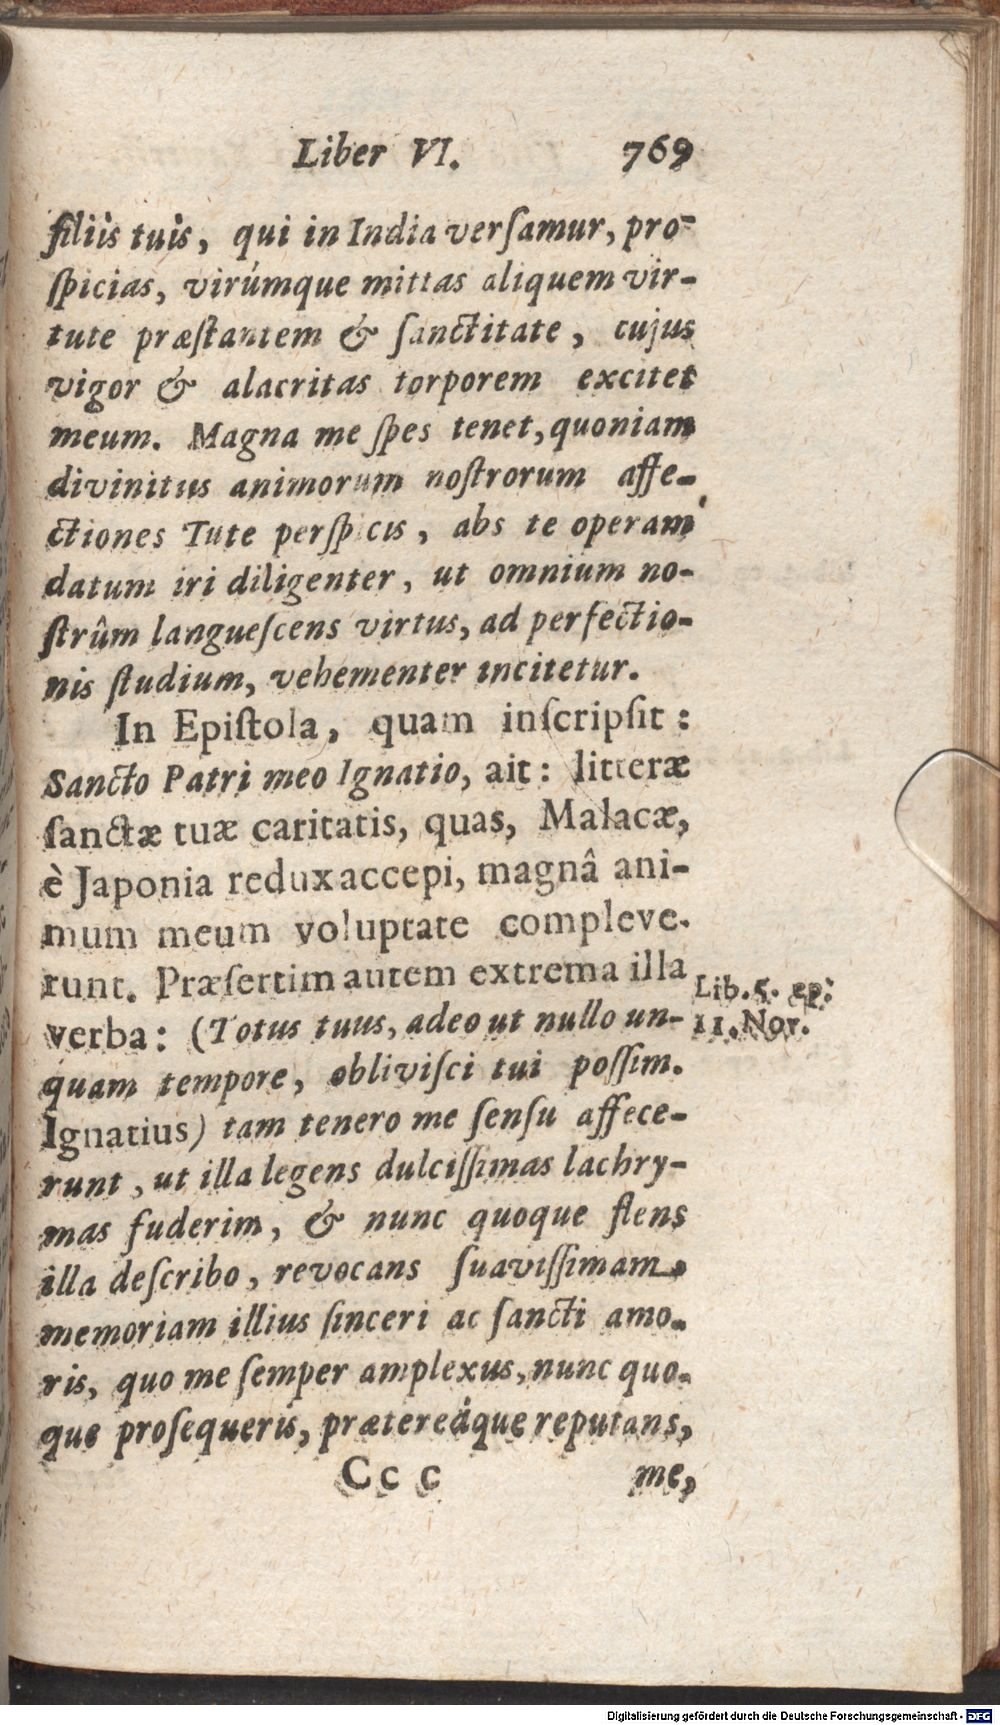 Liber VI. 769
filiis tuis, qui in India verſamur, pro-
ſpicias, virúmque mittas aliquem vir-
tute præſtantem & ſanctitate, cujus
vigor & alacritas torporem excitet
meum. Magna me ſpes tenet, quoniam
divinitus animorum noſtrorum affe-
ctiones Tute perſpicis, abs te operam
datum iri diligenter, ut omnium no-
ſtrûm langueſcens virtus, ad perfectio-
nis ſtudium, vehementer incitetur.
In Epiſtola, quam inſcripſit:
Sancto Patri meo Ignatio, ait: litteræ
ſanctæ tuæ caritatis, quas, Malacæ,
è Japonia redux accepi, magnâ ani-
mum meum voluptate compleve-
runt. Præſertim autem extrema illa
verba: (Totus tuus, adeo ut nullo un-
quam tempore, obliviſci tui poſſim.
Ignatius) tam tenero me ſenſu affece-
runt, ut illa legens dulciſſimas lachry-
mas fuderim, & nunc quoque flens
illa deſcribo, revocans ſuaviſſimam
memoriam illius ſinceri ac ſancti amo-
ris, quo me ſemper amplexus, nunc quo-
que proſequeris, prætereáque reputans,
Ccc me,
Lib. 5. ep:
11. Nov.
Digitalisierung gefördert durch die Deutsche Forschungsgemeinschaft - DFG